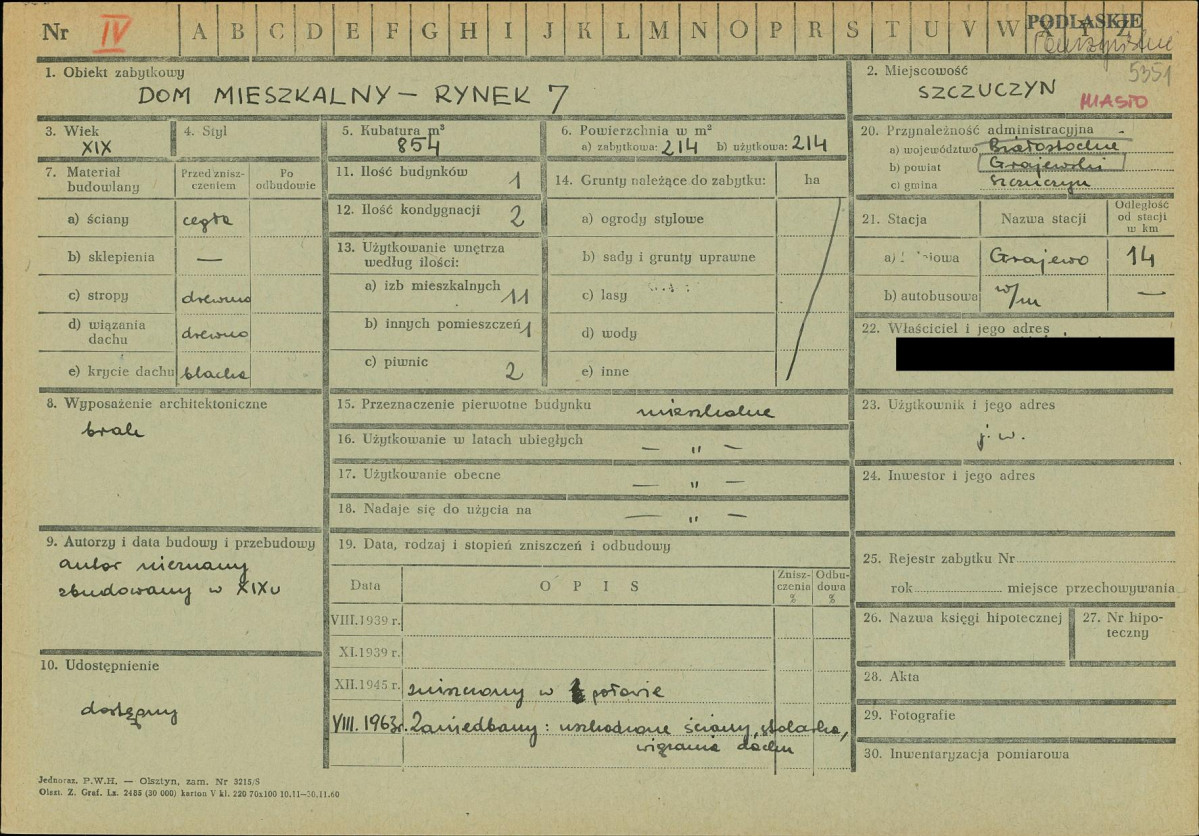 Nr IV A B C D E F G H I J K L M N O P R S T U V W X Y Z PODLASKIE
5351
1. Obiekt zabytkowy
DOM MIESZKALNY — RYNEK 7
2. Miejscowość
SZCZUCZYN
MIASTO
3. Wiek
XIX
4. Styl
5. Kubatura m³
854
6. Powierzchnia w m²
a) zabytkowa: 214 b) użytkowa: 214
20. Przynależność administracyjna
a) województwo Białostockie
b) powiat Grajewski
c) gmina Szczuczyn
7. Materiał budowlany
Przed znisz-
czeniem
Po
odbudowie
a) ściany cegła
b) sklepienia —
c) stropy drewno
d) wiązania
dachu drewno
e) krycie dachu blacha
11. Ilość budynków 1
12. Ilość kondygnacji 2
13. Użytkowanie wnętrza
według ilości:
a) izb mieszkalnych 11
b) innych pomieszczeń 1
c) piwnic 2
14. Grunty należące do zabytku: ha
a) ogrody stylowe
b) sady i grunty uprawne
c) lasy
d) wody
e) inne
21. Stacja Nazwa stacji
Odległość
od stacji
w km
a) Grajewo 14
b) autobusowa w/m —
22. Właściciel i jego adres
8. Wyposażenie architektoniczne
brak
15. Przeznaczenie pierwotne budynku mieszkalne
16. Użytkowanie w latach ubiegłych — " —
17. Użytkowanie obecne — " —
18. Nadaje się do użycia na — " —
23. Użytkownik i jego adres
j. w.
24. Inwestor i jego adres
9. Autorzy i data budowy i przebudowy
autor nieznany
zbudowany w XIXw
19. Data, rodzaj i stopień zniszczeń i odbudowy
Data OPIS
Znisz-
czenia
%
Odbu-
dowa
%
VIII.1939 r.
XI.1939 r.
XII.1945 r. zniszczony w połowie
VIII.1963r. Zaniedbany: uszkodzone ściany, stolarka,
więzania dachu
25. Rejestr zabytku Nr
rok miejsce przechowywania
26. Nazwa księgi hipotecznej
27. Nr hipo-
teczny
28. Akta
29. Fotografie
30. Inwentaryzacja pomiarowa
10. Udostępnienie
dostępny
Jednoraz. P.W.H. — Olsztyn, zam. Nr 3215/S
Olszt. Z. Graf. Lz. 2485 (30 000) karton V kl. 220 70x100 10.11—30.11.60